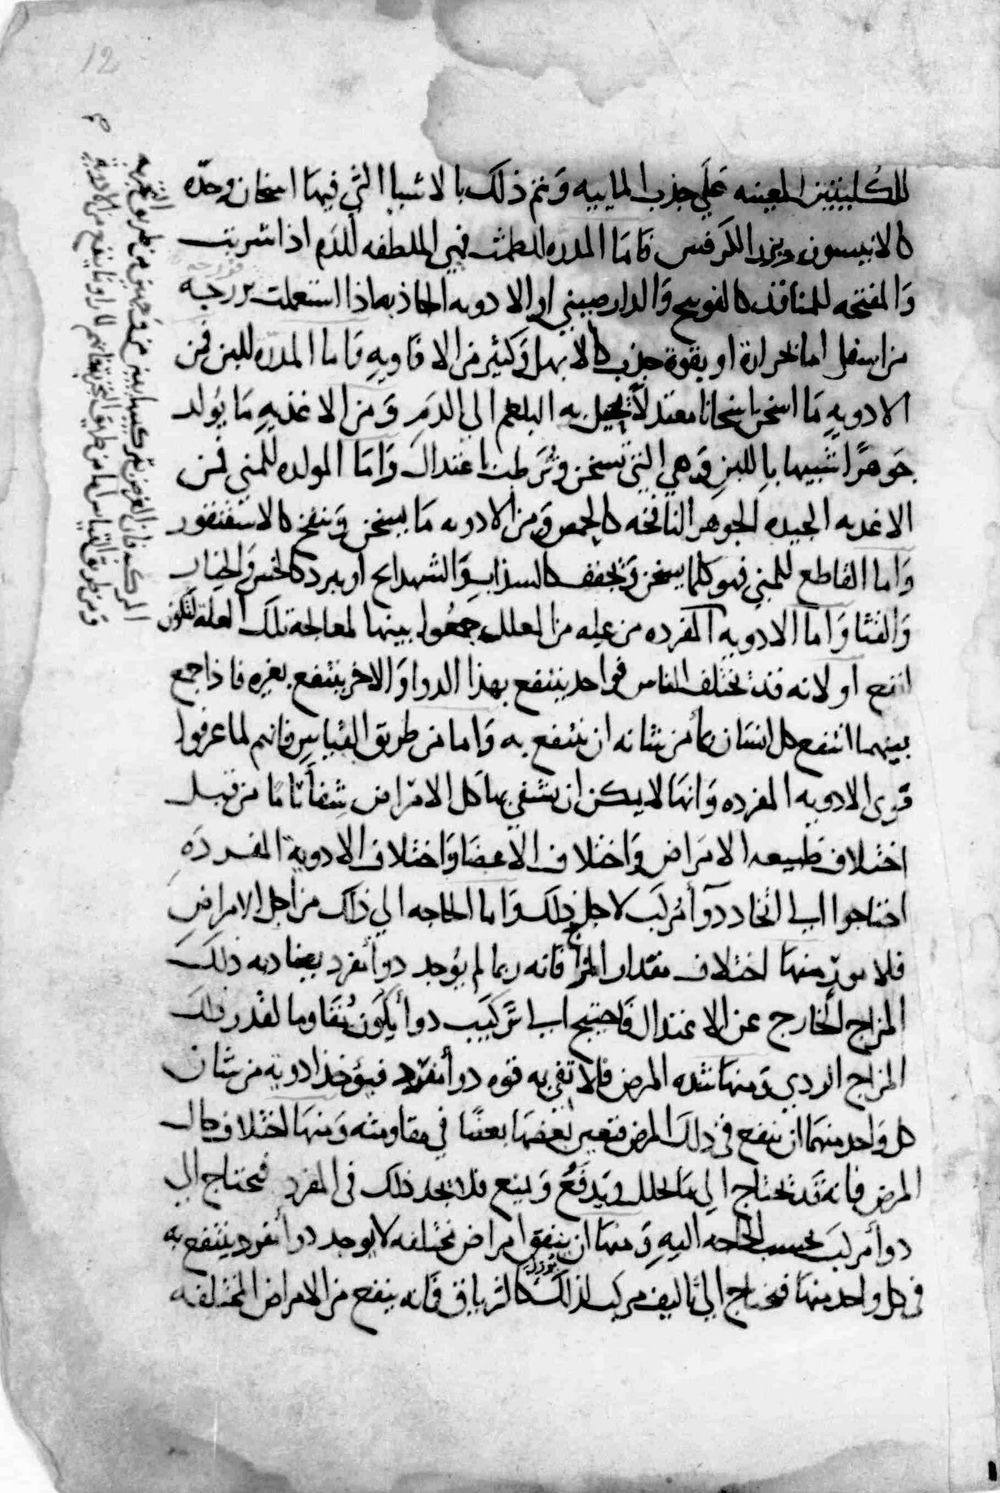 12
للكليتين المعينه على جذب الماييه ونتم ذلك بالاشيا التي فيها اسخان وحدّه
كالانيسون وبزر الكرفس فاما المدره للطمث فهي الملطفه للدم اذا شربت
والمفتحه للمنافذ كالفوتنج والدارصيني او الادويه الجاذبه اذا استعملت
من اسفل اما بحرارة او بقوة جذب كالابهل وكثير من الافاويه فاما المدره للبن فمن
الادويه ما اسخن اسخانا معتدلا تحيل به البلغم الى الدم ومن الاغذيه ما يولد
جوهرا شبيها باللبن وهي التي تسخن وترطب باعتدال واما المولده للمني فمن
الاغديه الجيده الجوهر النافخه كالحمص ومن الادويه ما يسخن وينفخ كالاسقنقور
واما القاطع للمني فهو كلما يسخن ويجفف كالسذاب والشهدانج او يبرد كالخس والخيار
والقثا واما الادويه المفرده من عله من العلل جمعوا بينها لمعالجة تلك العلة لتكون
انفع او لانه قد تختلف الناس فواحد ينتفع بهذا الدوا والاخر ينتفع بغيره فاذا جمع
بينهما انتفع كل انسان بما من شانه ان ينتفع به واما من طريق القياس فانهم لما عرفوا
قوى الادويه المفرده وانها لا يمكن ان تشفي بها كل الامراض شفأ تاما من قبل
اختلاف طبيعه الامراض واختلاف الاعضا واختلاف الادوية المفرده
احتاجوا الى اتخاد دوآ مركب لاجل ذلك واما الحاجه الي ذلك من اجل الامراض
فلامور منها اختلاف مقدار المزاج فانه ربما لم يوجد دوا مفرد يضاد به ذلك
المزاج الخارج عن الاعتدال فاحتيج الى تركيب دوا يكون مقاوما لقدر ذلك
المزاج الردي ومنها شده المرض فلا تفي به قوه دوا مفرد فيؤخذ ادوية من شان
كل واحد منهما ان ينفع في ذلك المرض فتعين بعضها بعضا في مقاومته ومنها اختلاف حال
المرض فانه قد تحتاج الي ما يحلل ويدفع ويمنع فلا تجد ذلك في المفرد فتحتاج الى
دوا مركب بحسب الحاجه اليه ومنها ان يتفق امراض مختلفه لا يوجد دوا مفرد ينتفع به
في كل واحد منها فتحتاج الي تاليف مركب لذلك كالترياق فانه ينفع من الامراض المختلفه
المركبه فان الغرض في تركيبها يبين من وجهين من طريق التجربه
ومن طريق القياس اما من طريق التجربه فانهم لما راوا ما ينفع من الادوية